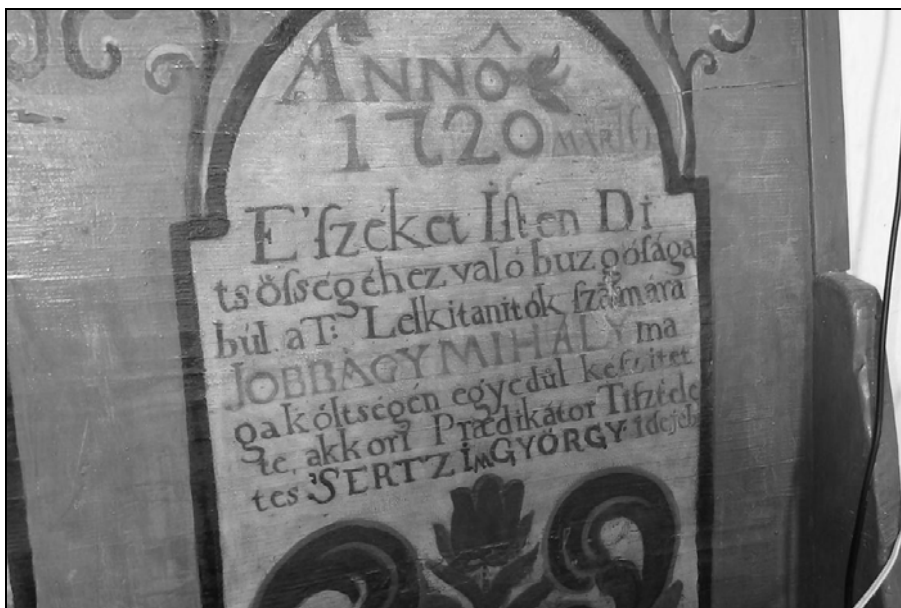 ANNÔ
1720 MART 6
E' ſzéket Iſten Di
tsőſségéhez való buzgóſága
búl a T: Lelkitanítók ſzámára
JOBBÁGY MIHÁLY ma
ga költségén egyedűl kéſzitet
te, akkori Prædikátor Tiſztele
tes SERTZ Im GYÖRGY idejéb